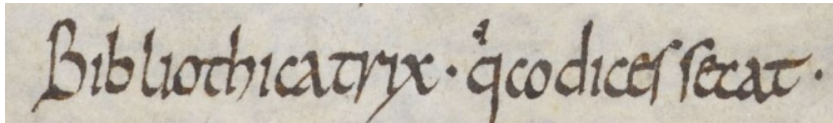 Bibliothicatrix · qͣ codiceſ ſecat ·